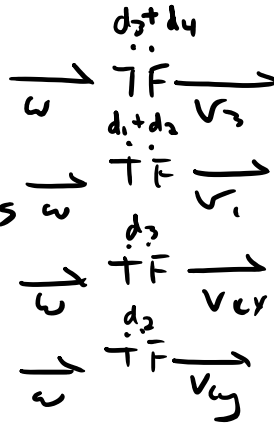 d₃+d₄
TF
ω V₃
d₁+d₂
s ω TF V₁
d₃
TF
ω Vcx
d₂
TF
ω Vcy